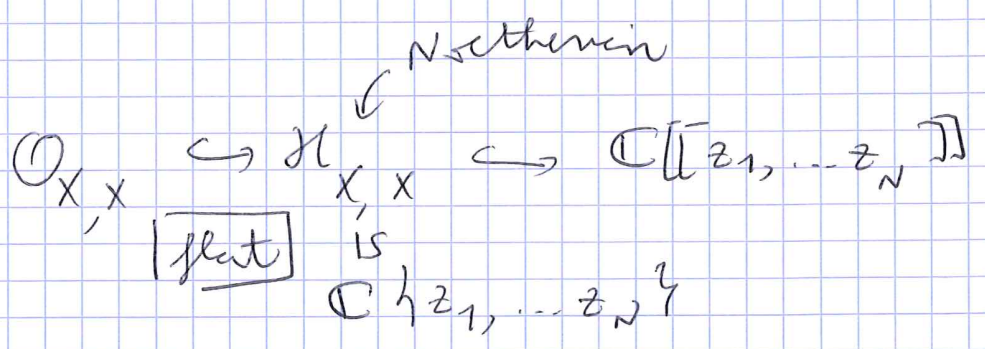 Noetherien
O_{X,x} ↪ H_{X,x} ↪ ℂ[[z_1, ... z_N]]
flat is
ℂ{z_1, ... z_N}